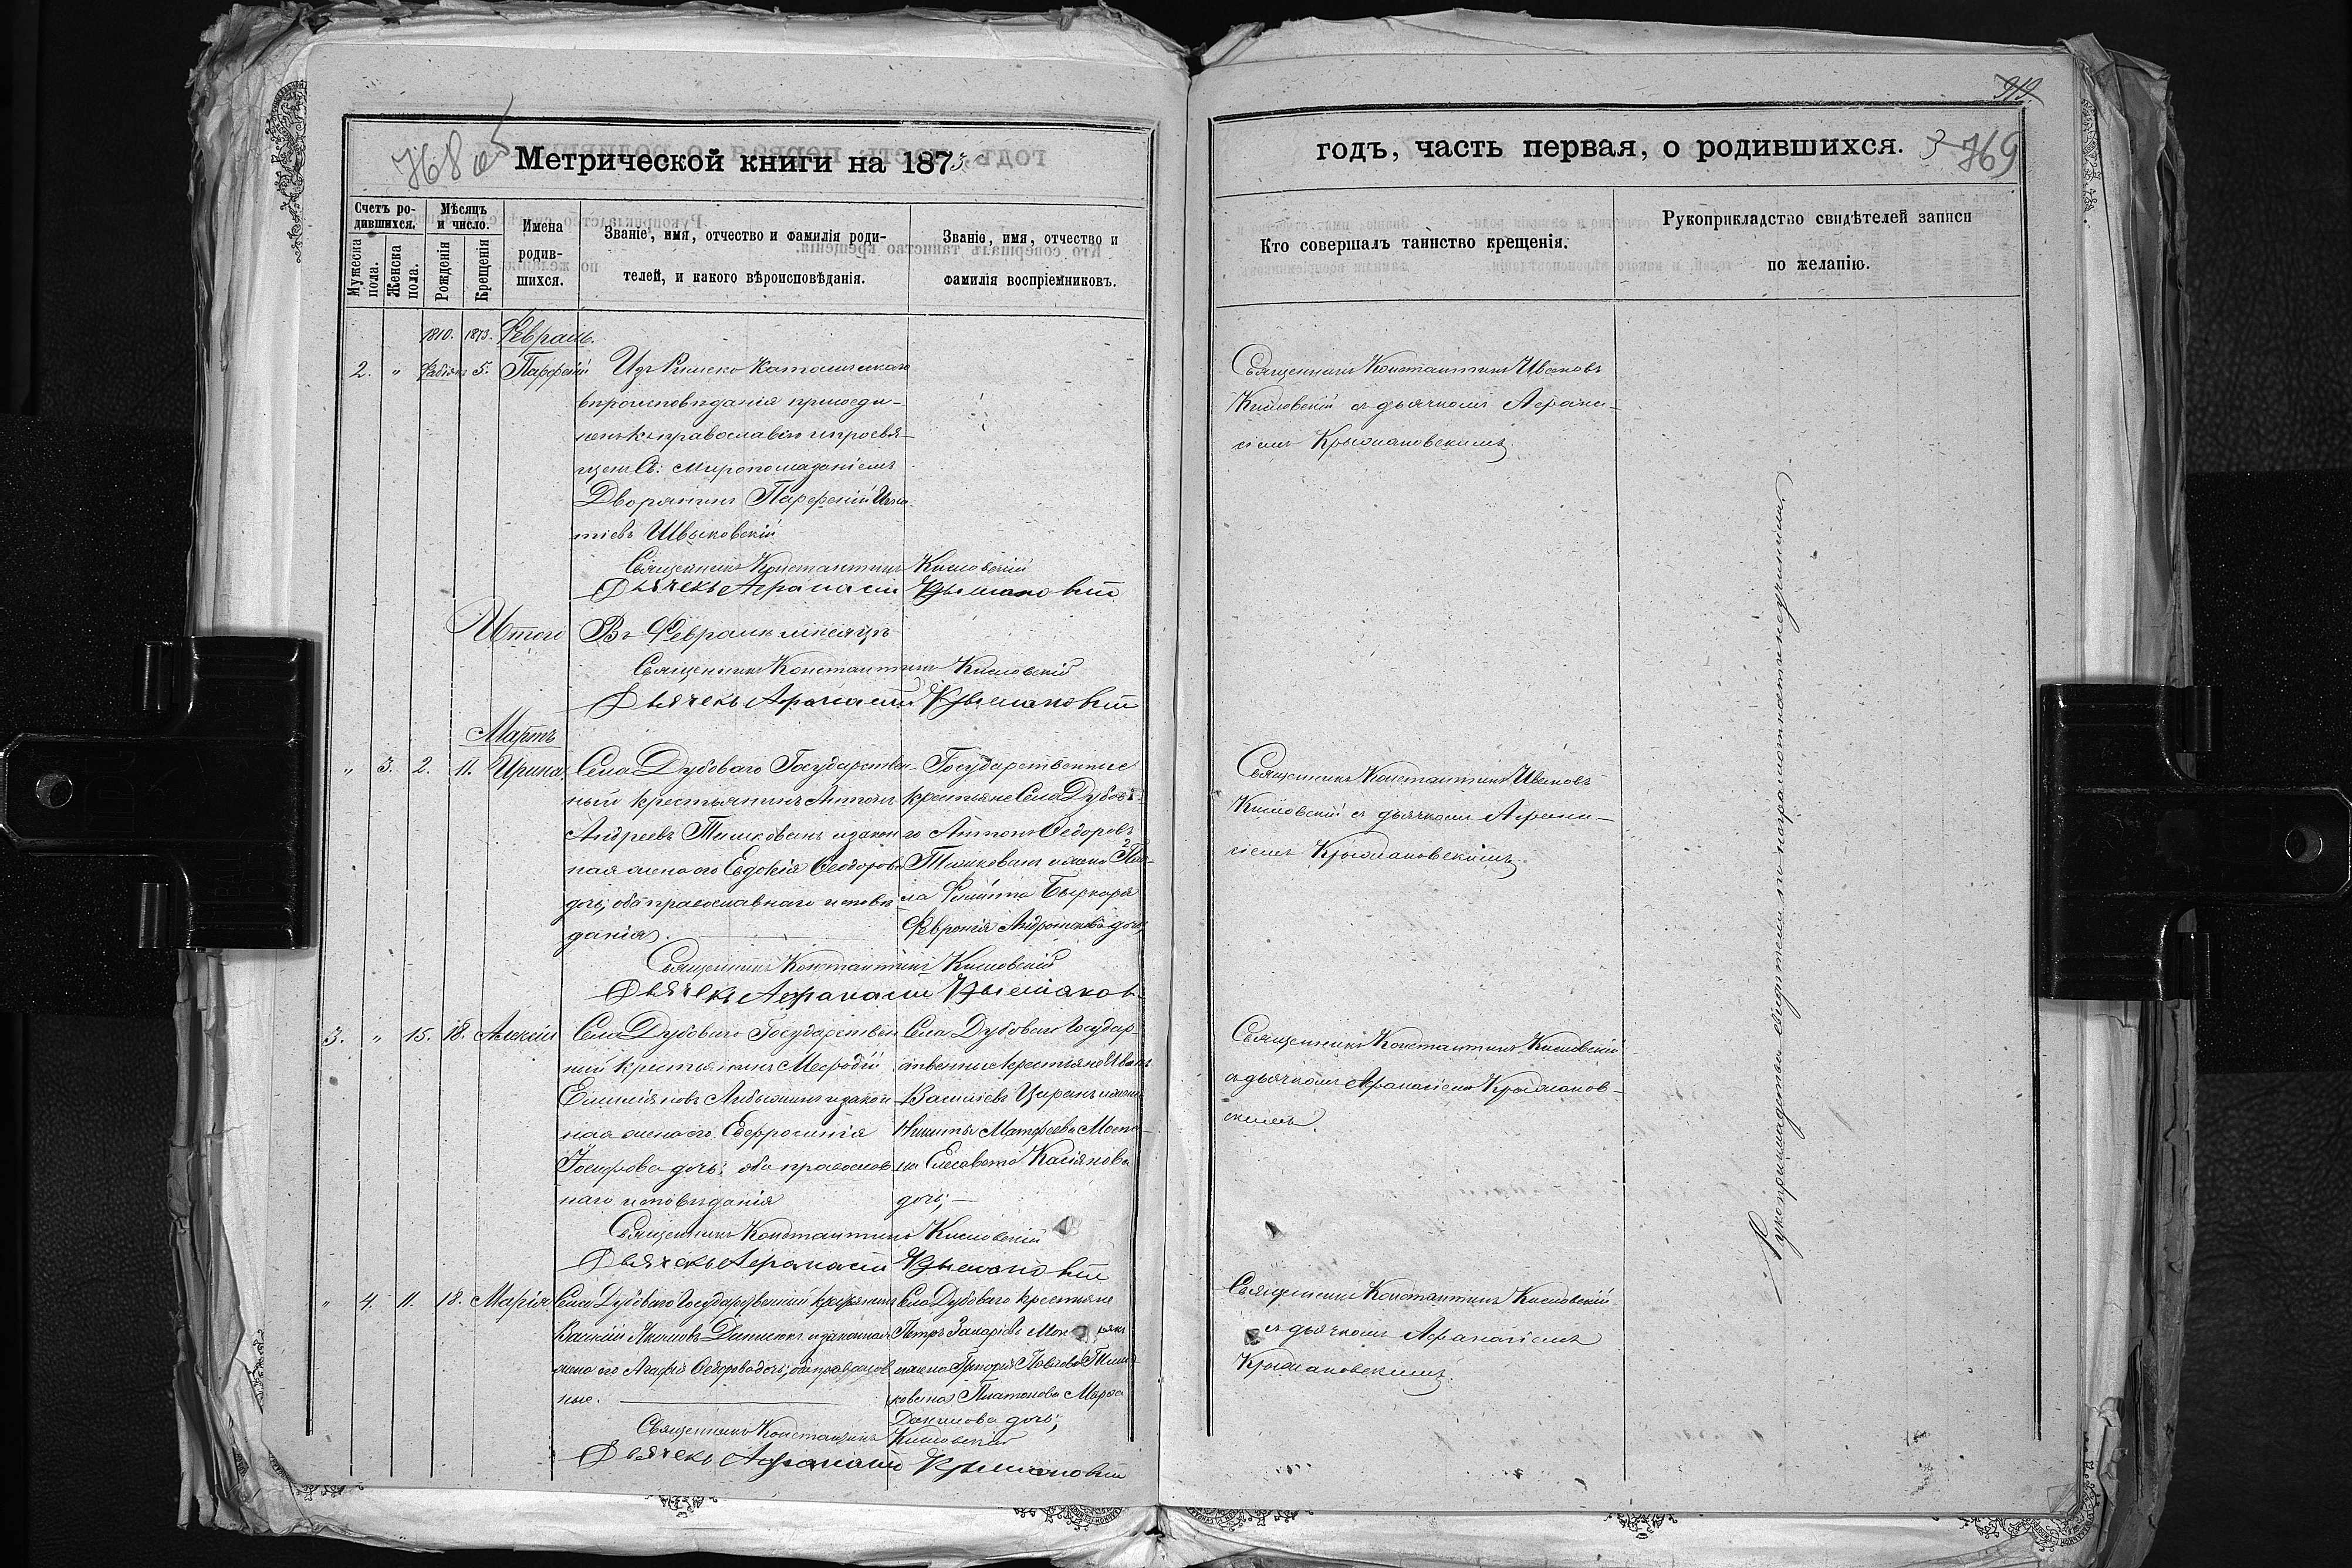 919
768 об
Метрической книги на 1873
годъ, часть первая, о родившихся.
3
769
Счетъ родившихся.
Мужеска пола.
Женска пола.
Мѣсяцъ и число.
Рожденія
Крещенія
Имена родившихся.
Званіе, имя, отчество и фамилія родителей, и какого вѣроисповѣданія.
Званіе, имя, отчество и фамилія воспріемниковъ.
Кто совершалъ таинство крещенія.
Рукоприкладство свидѣтелей записи по желанію.
1810. 1873. Февраль.
2. " 5. Парфеній
Изъ Римско Католическаго
вѣроисповѣданія присоеди-
ненъ къ православію и просвя-
щенъ Св: Миропомазаніемъ
Дворянинъ Парфеній Игна-
тіевъ Швыковскій
Священникъ Константинъ Ивановъ
Кисловскій съ дьячкомъ Афана-
сіемъ Крыжановскимъ.
Священникъ Константинъ Кисловскій
Дьячекъ Афанасій Крыжановскій
Итого Въ Февралѣ мѣсяцѣ
Священникъ Константинъ Кисловскій
Дьячекъ Афанасій Крыжановскій
Мартъ
" 3. 2. 11. Ирина.
Села Дубоваго Государствен-
ный крестьянинъ Антонъ
Андреевъ Тимковъ и закон-
ная жена его Евдокія Ѳеодорова
дочь, оба православнаго исповѣ
данія.
Государственные
крестьяне Села Дубова-
го Антонъ Ѳедоровъ
жена
Филиппа
Февронія Андроникова дочь,
Священникъ Константинъ Ивановъ
Кисловскій съ дьячкомъ Афана-
сіемъ Крыжановскимъ.
Священникъ Константинъ Кисловскій
Дьячекъ Афанасій Крыжанов-
3. " 15. 18. Алексій
Села Дубоваго Государствен
ный крестьянинъ Мефодій
Емиліановъ и закон
ная жена его Евфросинія
Іосифова дочь; оба православ
наго исповѣданія
Села Дубоваго Государ-
ственные крестьяне Иванъ
Василіевъ Царанъ и жена
Никиты Матфеева
Елисавета Касіянова
дочь; —
Священникъ Константинъ Кисловскій
съ дьячкомъ Афанасіемъ Крыжанов-
скимъ.
Священникъ Константинъ Кисловскій
Дьячекъ Афанасій Крыжановскій
" 4. 11. 18. Марія
Села Дубоваго Государственный крестьянинъ
Василій и законная
жена его Агафія Ѳедорова дочь; оба православ
ные.
Села Дубоваго крестьяне
Петръ Захаріевъ
и жена Григорія Павлова
Платонова Марѳа
Данилова дочь;
Священникъ Константинъ Кисловскій
съ дьячкомъ Афанасіемъ
Крыжановскимъ.
Священникъ Константинъ Кисловскій
Дьячекъ Афанасій Крыжановскій
Рукоприкладства свидѣтели по неграмотности неучинили